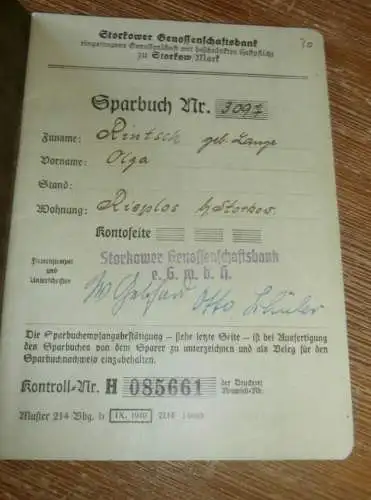 Storkower Genossenschaftsbank
eingetragene Genossenschaft mit beschränkter Haftpflicht
zu Storkow/Mark
Sparbuch Nr. 3097
Zuname: Rintsch geb. Lange
Vorname: Olga
Stand:
Wohnung: Rieplos b/Storkow.
Kontoseite
Storkower Genossenschaftsbank
e. G. m. b. H.
Firmenstempel
und
Unterschriften
Otto Schuler
Die Sparbuchempfangsbestätigung — siehe letzte Seite — ist bei Ausfertigung
des Sparbuches von dem Sparer zu unterzeichnen und als Beleg für den
Sparbuchnachweis einzubehalten.
Kontroll-Nr. H 085661 der Druckerei
Muster 214 Bbg. b IX. 1940